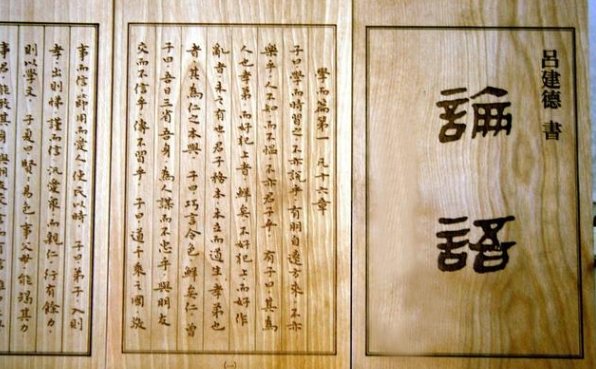 呂建德 書
論語
學而篇第一 凡十六章
子曰、學而時習之、不亦說乎、有朋自遠方來、不亦
樂乎、人不知而不慍、不亦君子乎、 有子曰、其為
人也孝弟、而好犯上者、鮮矣、不好犯上、而好作
亂者、未之有也、君子務本、本立而道生、孝弟也
者、其為仁之本與、 子曰、巧言令色、鮮矣仁、曾
子曰、吾日三省吾身、為人謀而不忠乎、與朋友
交而不信乎、傳不習乎、 子曰、道千乘之國、敬
(一)
事而信、節用而愛人、使民以時、 子曰、弟子、入則
孝、出則悌、謹而信、汎愛眾、而親仁、行有餘力、
則以學文、 子夏曰、賢賢易色、事父母、能竭其力、
事君、能致其身、與朋友交、言而有信、